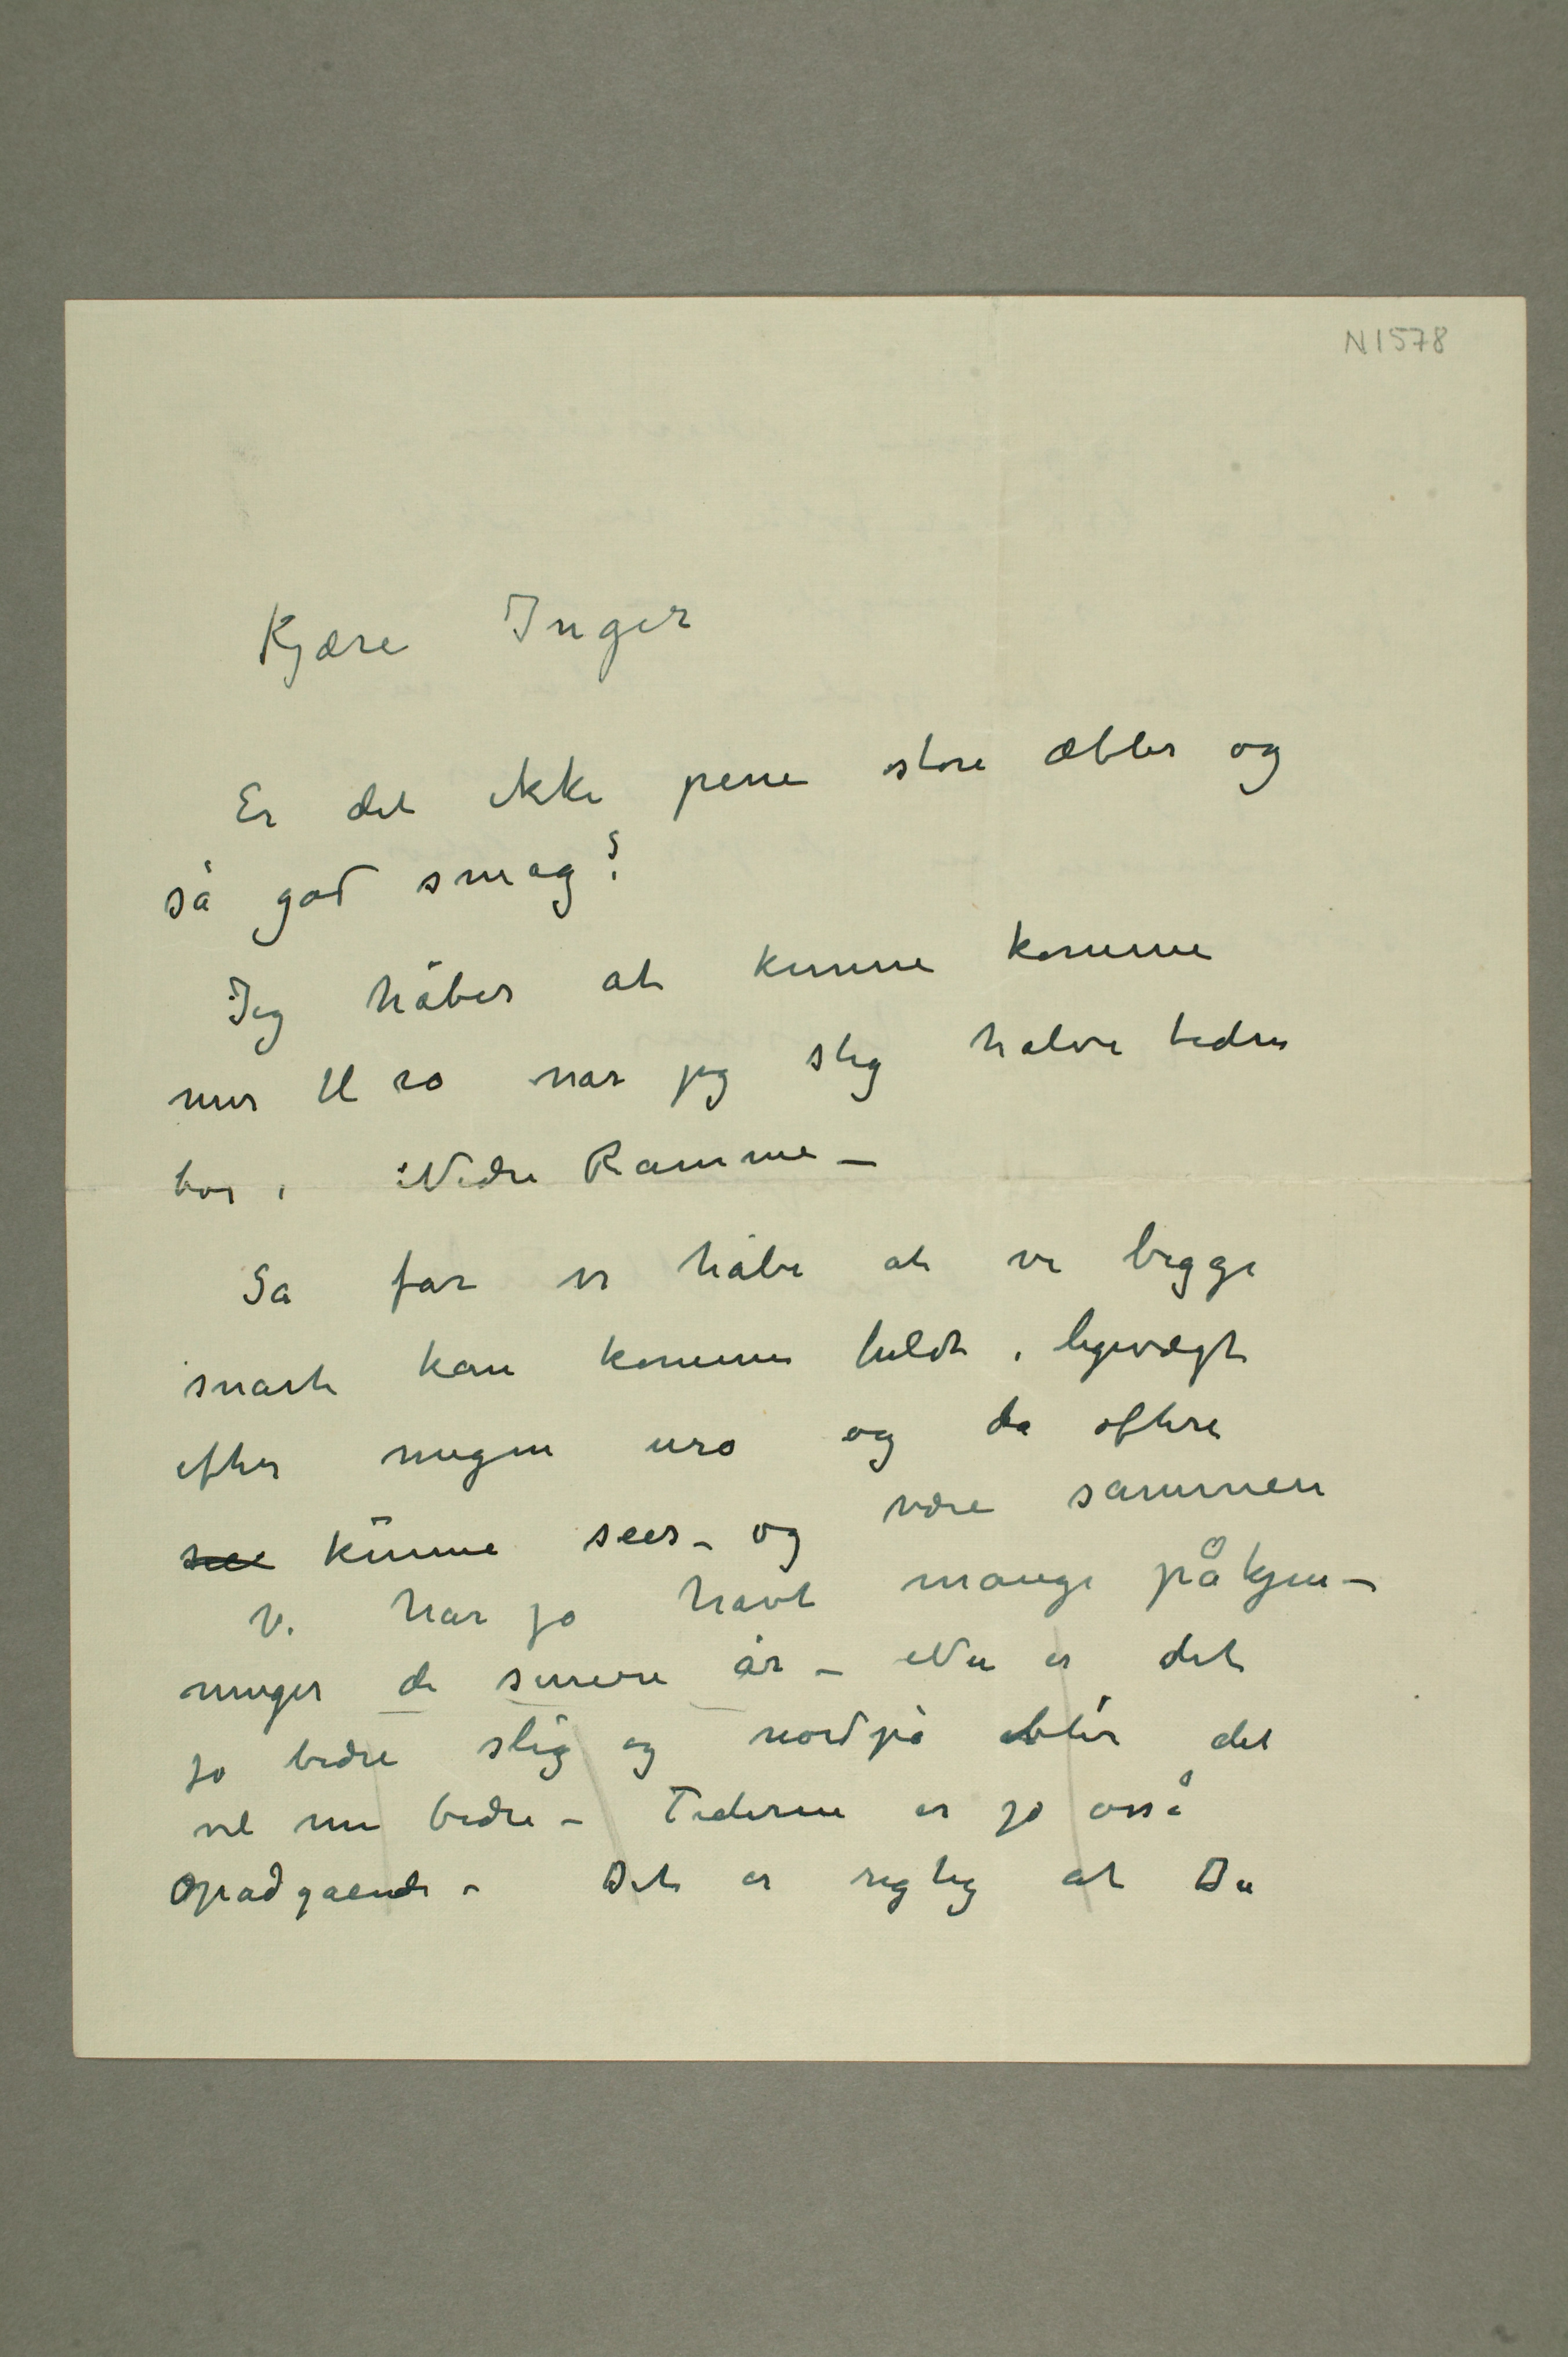 N 1578
Kjære Inger
Er det ikke pene store æbler og
så god smag?
Jeg håber at kunne komme
mer til ro når jeg slig halve tiden
bor i Nedre Ramme –
Så får vi håbe at vi begge
snart kan komme fuldt i ligevægt
efter megen uro og da oftere
see kunne sees – og være sammen
Vi har jo havt mange påkjen-
ninger de senere år – Nu er det
jo bedre slig og nordpå blir det
vel nu bedre – Tiderne er jo osså
opadgaende – Det er rigtig at Du